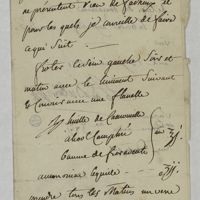 ne présentent rien de fâcheux et
pour les quels je conseille de faire
ce qui suit —
frotter le sein gauche soir et
matin avec le liniment suivant
le couvrir avec une flanelle
huile de Camomille
alcool Camphré
baume de fioraventi
ammoniac liquide
prendre tous les Matins un verre